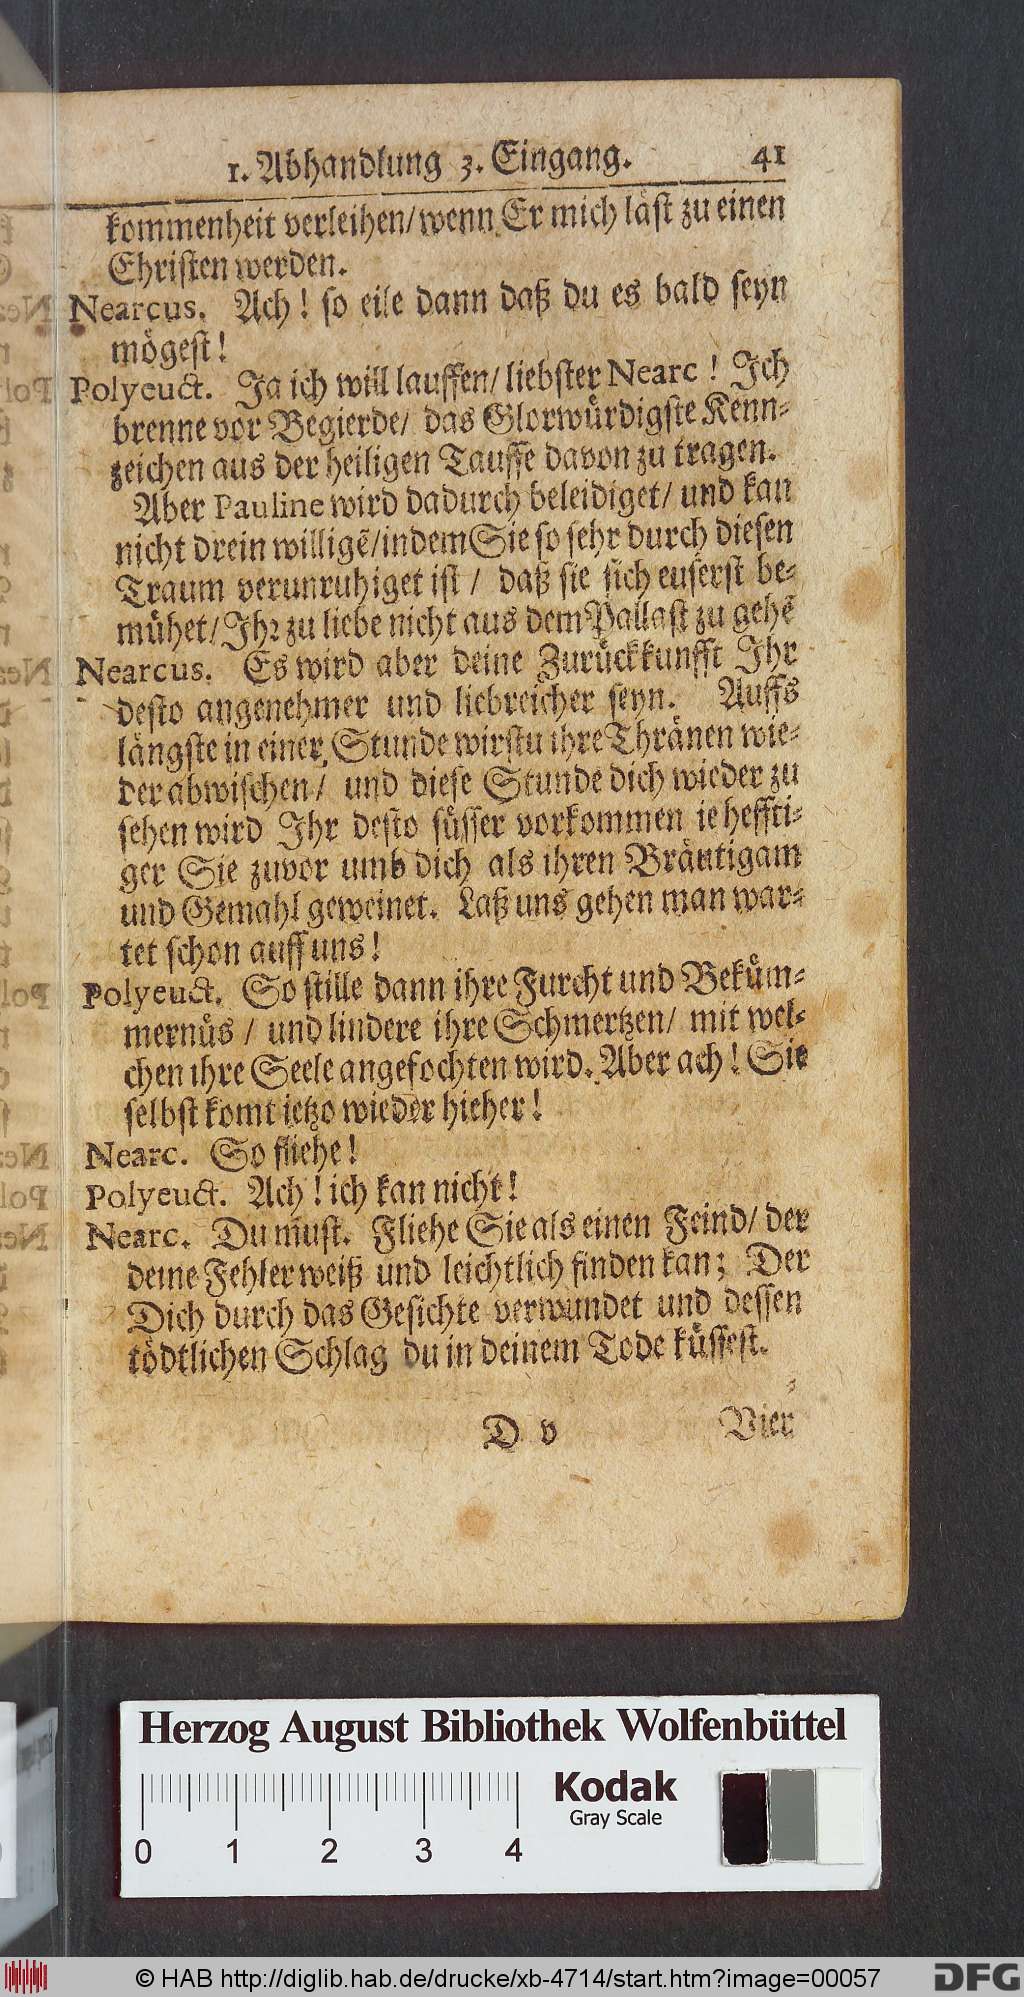 1. Abhandlung 3. Eingang. 41
kommenheit verleihen/wenn Er mich läst zu einen
Christen werden.
Nearcus. Ach! so eile dann daß du es bald seyn
mögest!
Polyeuct. Ja ich will lauffen/ liebster Nearc! Ich
brenne vor Begierde/ das Glorwürdigste Kenn-
zeichen aus der heiligen Tauffe davon zu tragen.
Aber Pauline wird dadurch beleidiget/ und kan
nicht drein willigẽ/indem Sie so sehr durch diesen
Traum verunruhiget ist / daß sie sich euserst be-
mühet/Ihr zu liebe nicht aus dem Pallast zu gehẽ
Nearcus. Es wird aber deine Zurückkunfft Ihr
desto angenehmer und liebreicher seyn. Auffs
längste in einer Stunde wirstu ihre Thränen wie-
der abwischen/ und diese Stunde dich wieder zu
sehen wird Ihr desto süsser vorkommen ie heffti-
ger Sie zuvor umb dich als ihren Bräutigam
und Gemahl geweinet. Laß uns gehen man war-
tet schon auff uns!
Polyeuct. So stille dann ihre Furcht und Beküm-
mernüs / und lindere ihre Schmertzen/ mit wel-
chen ihre Seele angefochten wird. Aber ach! Sie
selbst komt ietzo wieder hieher!
Nearc. So fliehe!
Polyeuct. Ach! ich kan nicht!
Nearc. Du must. Fliehe Sie als einen Feind/ der
deine Fehler weiß und leichtlich finden kan; Der
Dich durch das Gesichte verwundet und dessen
tödtlichen Schlag du in deinem Tode küssest.
D v Vier
Herzog August Bibliothek Wolfenbüttel
0 1 2 3 4
Kodak
Gray Scale
© HAB http://diglib.hab.de/drucke/xb-4714/start.htm?image=00057
DFG